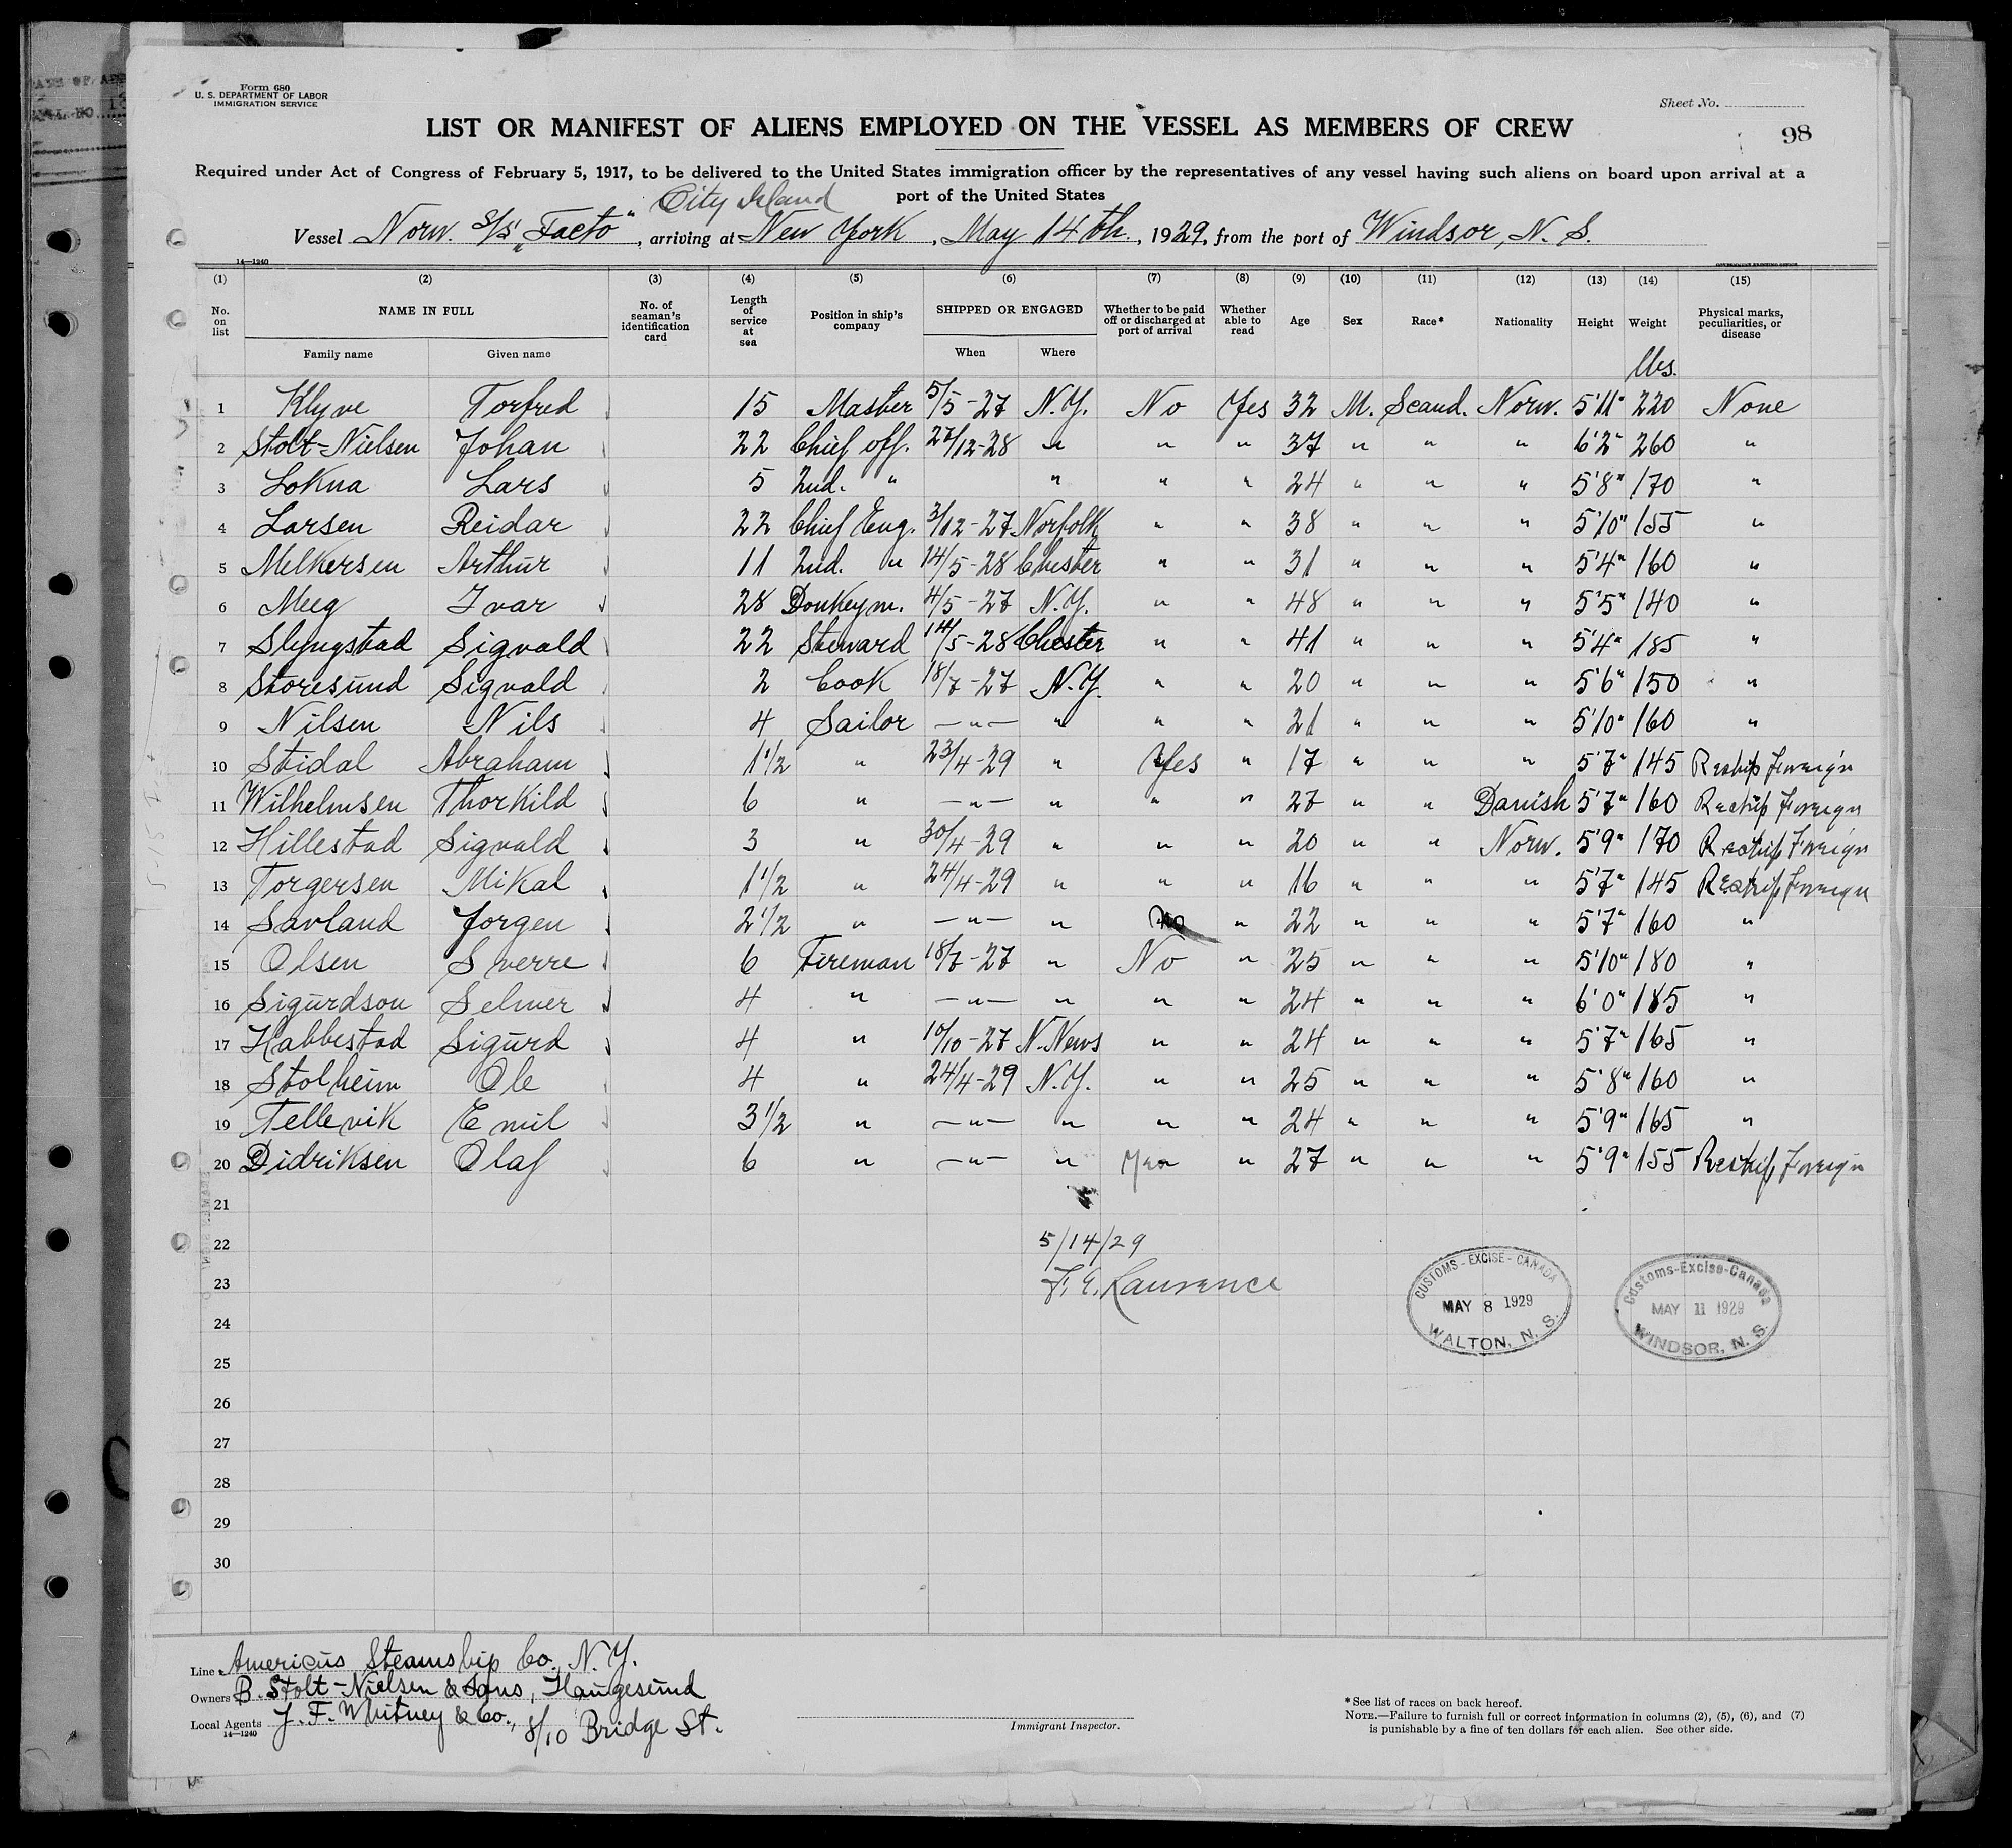 Form 680
U. S. DEPARTMENT OF LABOR
IMMIGRATION SERVICE
Sheet No.
98
LIST OR MANIFEST OF ALIENS EMPLOYED ON THE VESSEL AS MEMBERS OF CREW
Required under Act of Congress of February 5, 1917, to be delivered to the United States immigration officer by the representatives of any vessel having such aliens on board upon arrival at a
port of the United States
City Island
Vessel Norw. S/S "Facto", arriving at New York, May 14th, 1929, from the port of Windsor, N. S.
14—1240
(1) (2) (3) (4) (5) (6) (7) (8) (9) (10) (11) (12) (13) (14) (15)
No. on list NAME IN FULL Family name Given name No. of seaman's identification card Length of service at sea Position in ship's company SHIPPED OR ENGAGED When Where Whether to be paid off or discharged at port of arrival Whether able to read Age Sex Race* Nationality Height Weight Physical marks, peculiarities, or disease
lbs.
1 Klyve Torfred 15 Master 5/5-27 N.Y. No Yes 32 M. Scand. Norw. 5'11" 220 None
2 Stolt-Nielsen Johan 22 Chief off. 27/12-28 " " " 37 " " " 6'2" 260 "
3 Lokna Lars 5 2nd. " " " " 24 " " " 5'8" 170 "
4 Larsen Reidar 22 Chief Eng. 3/12-27 Norfolk " " 38 " " " 5'10" 155 "
5 Melkersen Arthur 11 2nd. " 14/5-28 Chester " " 31 " " " 5'4" 160 "
6 Meeg Ivar 28 Donkeym. 4/5-27 N.Y. " " 48 " " " 5'5" 140 "
7 Slyngstad Sigvald 22 Steward 14/5-28 Chester " " 41 " " " 5'4" 185 "
8 Storesund Sigvald 2 Cook 18/7-27 N.Y. " " 20 " " " 5'6" 150 "
9 Nilsen Nils 4 Sailor —"— " " " 21 " " " 5'10" 160 "
10 Stidal Abraham 1 1/2 " 23/4-29 " Yes " 17 " " " 5'7" 145 Reship Foreign
11 Wilhelmsen Thorkild 6 " —"— " " " 27 " " Danish 5'7" 160 Reship Foreign
12 Hillestad Sigvald 3 " 30/4-29 " " " 20 " " Norw. 5'9" 170 Reship Foreign
13 Torgersen Mikal 1 1/2 " 24/4-29 " " " 16 " " " 5'7" 145 Reship Foreign
14 Savland Jorgen 2 1/2 " —"— " No " 22 " " " 5'7" 160 "
15 Olsen Sverre 6 Fireman 18/7-27 " No " 25 " " " 5'10" 180 "
16 Sigurdson Selmer 4 " —"— " " " 24 " " " 6'0" 185 "
17 Habbestad Sigurd 4 " 10/10-27 N. News " " 24 " " " 5'7" 165 "
18 Stolheim Ole 4 " 24/4-29 N.Y. " " 25 " " " 5'8" 160 "
19 Tellevik Emil 3 1/2 " —"— " " " 24 " " " 5'9" 165 "
20 Didriksen Olaf 6 " —"— " Yes " 27 " " " 5'9" 155 Reship Foreign
21
22 5/14/29
23 F. E. Laurence
24
25
26
27
28
29
30
CUSTOMS-EXCISE-CANADA
MAY 8 1929
WALTON, N. S.
Customs-Excise-Canada
MAY 11 1929
WINDSOR, N. S.
Line Americus Steamship Co. N.Y.
Owners B. Stolt-Nielsen & Sons, Haugesund
Local Agents J. F. Whitney & Co., 8/10 Bridge St.
14—1240
Immigrant Inspector.
* See list of races on back hereof.
NOTE.—Failure to furnish full or correct information in columns (2), (5), (6), and (7)
is punishable by a fine of ten dollars for each alien. See other side.